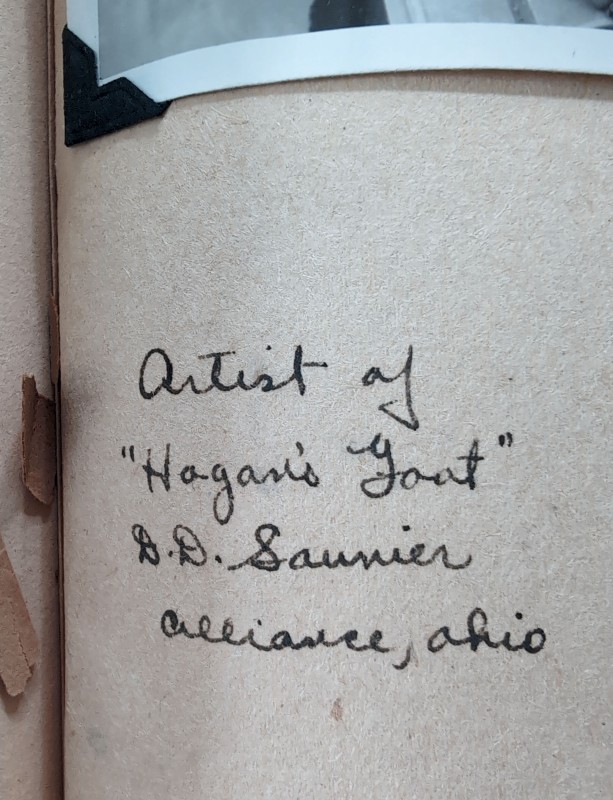 Artist of
"Hogan's Goat"
D.D. Saunier
Alliance, Ohio